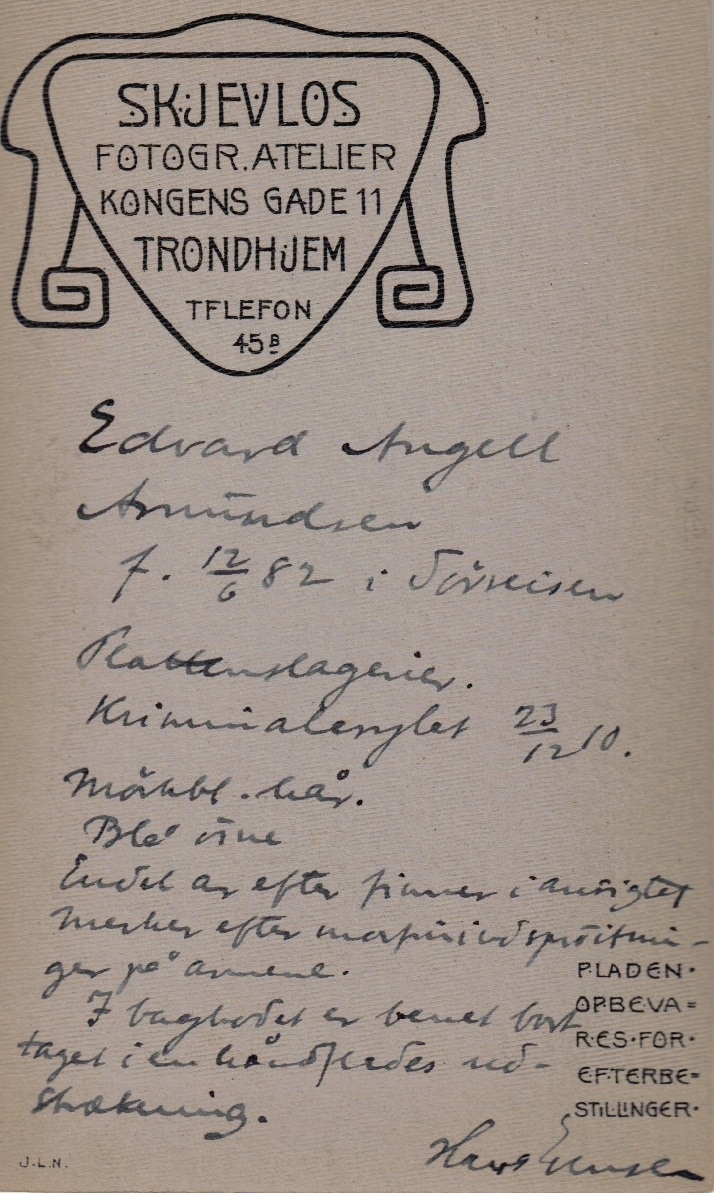 SKJEVLOS
FOTOGR. ATELIER
KONGENS GADE 11
TRONDHJEM
TFLEFON
45B
Edvard Angell
Amundsen
f. 12/6 82 i
Kriminalasylet 23/12 10.
Mörkbl. hår.
Blå öine
Endel ar efter finner i ansigtet
Merker efter morfinindspröitnin-
ger på armene.
I baghodet er benet bort
taget i en håndflades ud-
strækning.
PLADEN·
OPBEVA=
RES·FOR·
EFTERBE=
STILLINGER·
Hans
J.L.N.